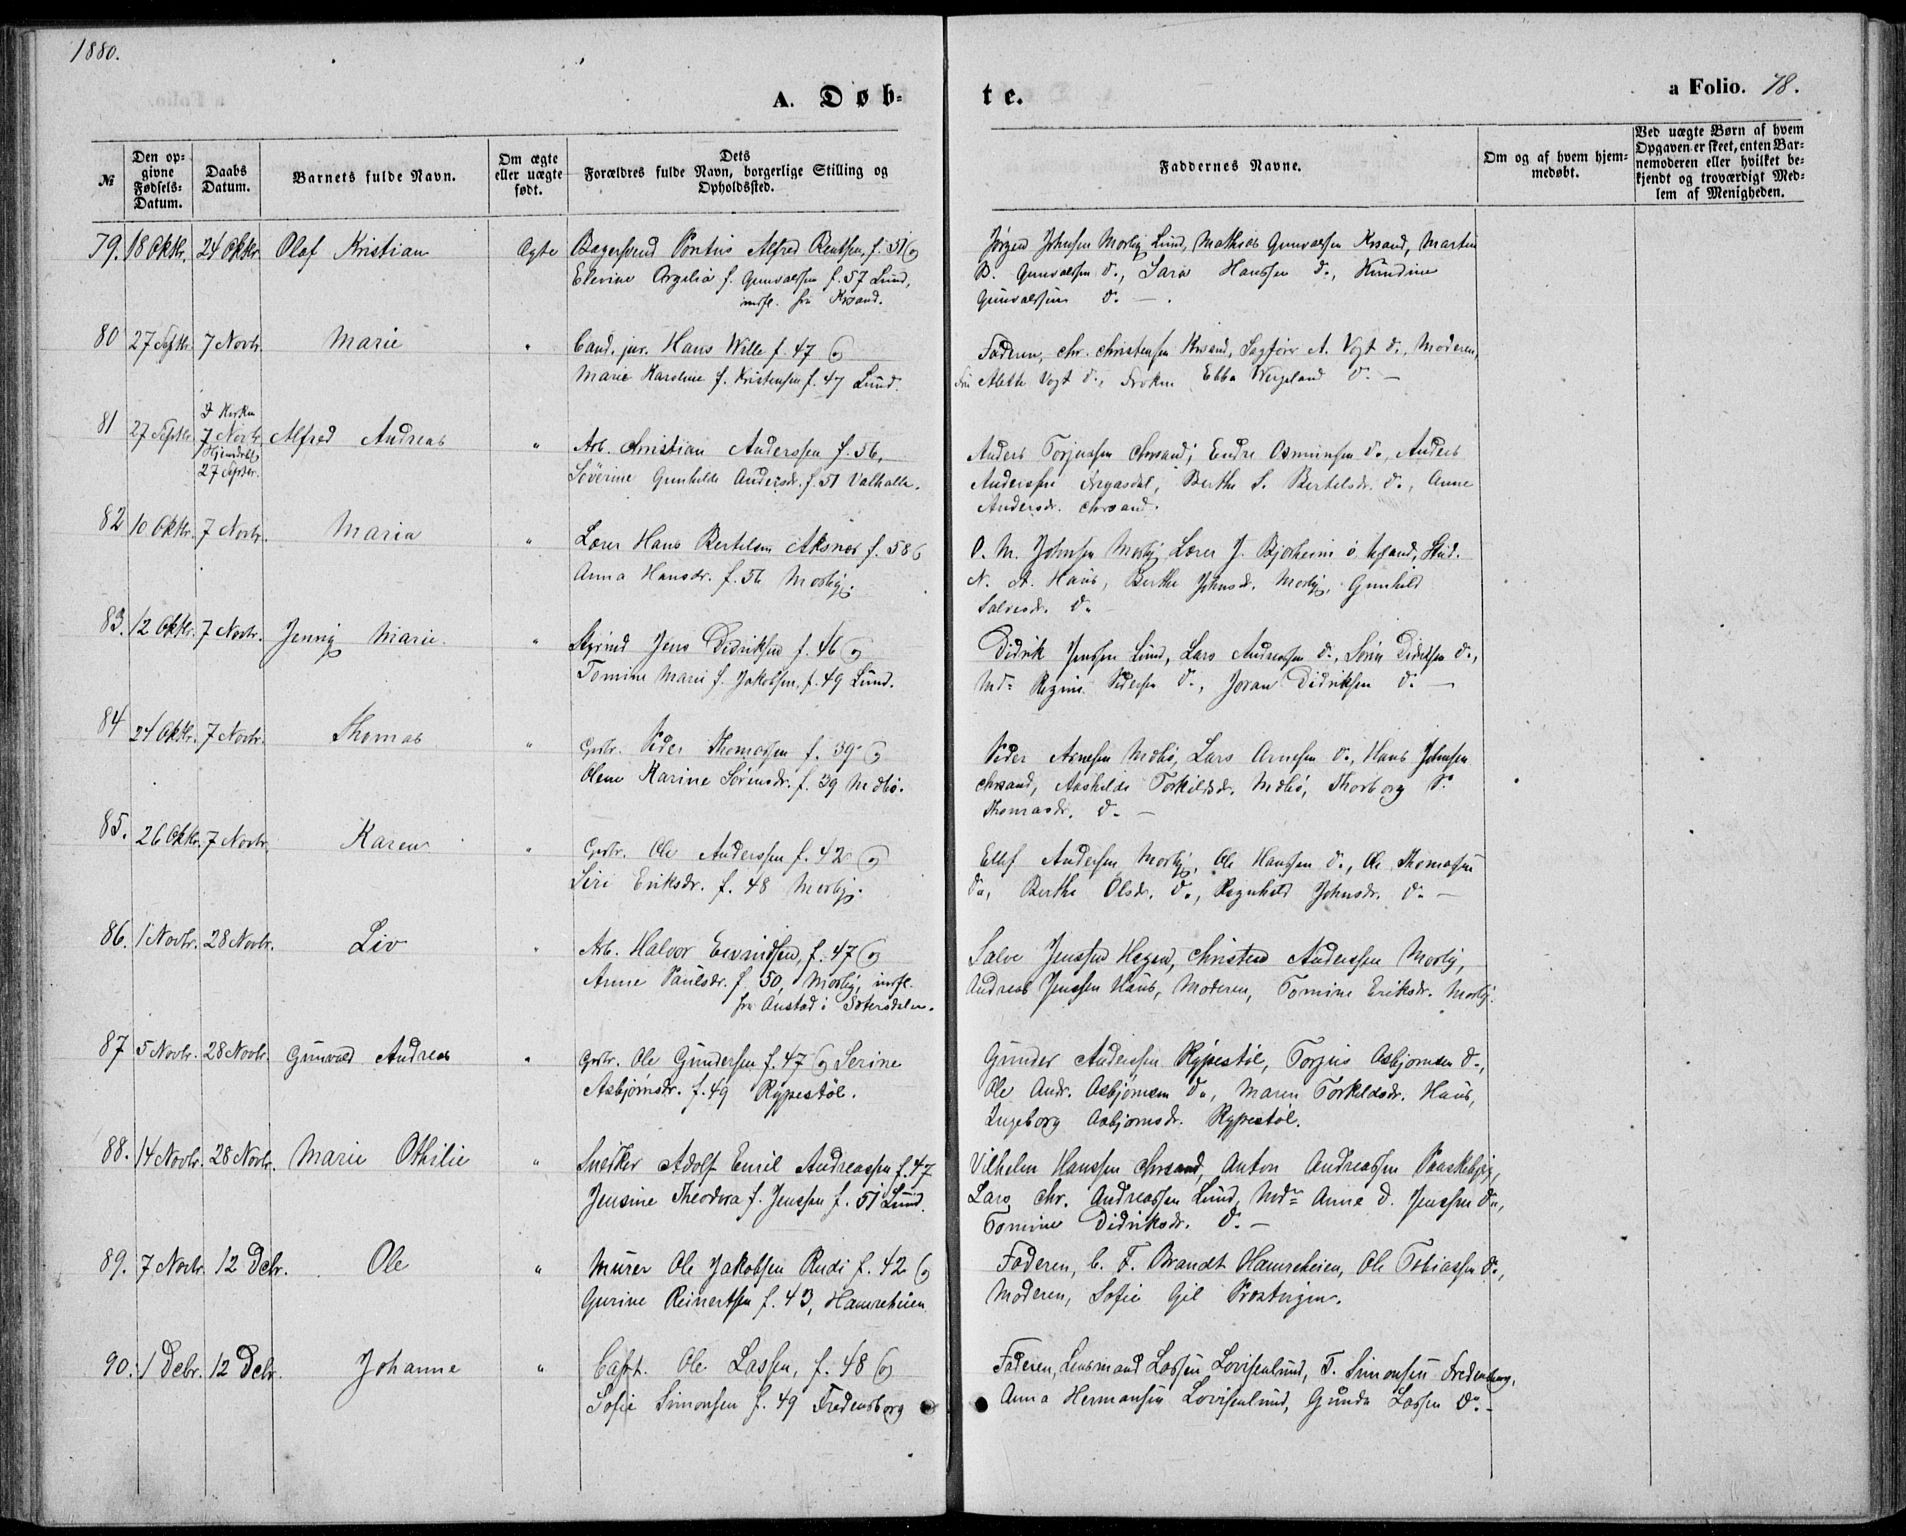 1880.
A. Døb-
te.
a Folio. 78.
№
Den op-
givne
Fødsels-
Datum.
Daabs
Datum.
Barnets fulde Navn.
Om ægte
eller uægte
født.
Dets
Forældres fulde Navn, borgerlige Stilling og
Opholdssted.
Faddernes Navne.
Om og af hvem hjem-
medøbt.
Ved uægte Børn af hvem
Opgaven er skeet, enten Bar-
nemoderen eller hvilket be-
kjendt og troværdigt Med-
lem af Menigheden.
79. 18 Oktbr. 24 Oktbr. Olaf Kristian Ægte Bagersvend Pontus Alfred Bentsen, f. 51 og
Elevine Argelia f. Gunvalssen f. 57 Lund,
indfl. fra Krsand.
Jørgen Johnsen Mosby Lund, Mathias Gunvalssen Krsand, Martin
B. Gunvalssen do., Sara Hanssen do., Kundine
Gunvalssen do. —
80 27 Septbr. 7 Novbr. Marie " Cand. jur. Hans Wille f. 47 og
Marie Karoline f. Kristensen f. 47 Lund.
Faderen, Chr. Christensen Krsand, Sagfører A. Vogt do., Moderen,
Fru Alette Vogt do., Frøken Ebba Wergeland do. —
81 27 Septbr. I Kirken
7 Novbr.
Hjemdøbt
27 Septbr. Alfred Andreas " Arb. Christian Anderssen f. 56,
Severine Gunhilde Andersdr. f. 51 Valhalla.
Anders Torjussen Chrsand; Endre Osmunsen do., Anders
Anderssen Aegasdal, Berthe S. Bertelsdr. do., Anne
Andersdr. Chrsand.
82 10 Oktbr. 7 Novbr. Maria " Lærer Hans Bertelsen Aksnes f. 58 &
Anna Hansdr. f. 56 Mosby.
O. M. Johnsen Mosby Lærer J. Bjorheim i Krsand, Stud.
N. A. Haus, Berthe Johnsdr. Mosby, Gunhild
Salvesdr. do.
83. 12 Oktbr. 7 Novbr. Jenny Marie. " Styrmd Jens Didriksen f. 46 og
Tomine Marie f. Jakobsen f. 49 Lund.
Didrik Jenssen Lund, Lars Andreassen do., Søren Didriksen do.,
Md. Regine Pedersen do., Joran Didriksen do. —
84 24 Oktbr. 7 Novbr. Thomas " Gbr. Peder Thomassen f. 39 og
Olene Karine Sørensdr. f. 39 Medbø.
Peder Arnesen Medbø, Lars Arnesen do., Hans Johnsen
Chrsand, Aashilde Torkildsdr. Medbø, Thorborg P.
Thomasdr. do. —
85. 26 Oktbr. 7 Novbr. Karen " Gbr. Ole Anderssen f. 42 og
Siri Eriksdr. f. 48 Mosby.
Ellef Andersen Mosby, Ole Hanssen do., Ole Thomassen
do., Berthe Olsdr. do., Ragnhild Johnsdr. do. —
86. 1 Novbr. 28 Novbr. Liv " Arb. Halvor Eivindsen, f. 47 og
Anne Paulsdr. f. 50, Mosby, indfl.
fra Austad i Sætersdalen.
Salve Jenssen Hagen, Christen Anderssen Mosby,
Andreas Jenssen Haus, Moderen, Tomine Eriksdr. Mosby.
87 5 Novbr. 28 Novbr. Gunvald Andreas " Gbr. Ole Gundersen f. 47 og Serine
Asbjørnsdr. f. 49 Rypestøl.
Gunder Anderssen Rypestøl, Torjus Asbjornsen do.,
Ole Andr. Asbjornsen do., Maren Torkeldsdr. Haus,
Ingeborg Asbjornsdr. Rypestøl.
88. 14 Novbr. 28 Novbr. Marie Othilie " Snedker Adolf Emil Andreassen f. 47
Jensine Theodora f. Jenssen f. 51 Lund.
Vilhelm Hanssen Chrsand, Anton Andreassen Paaskebjerg,
Lars Chr. Andreassen Lund, Md. Anne D. Jenssen do.,
Tomine Didriksdr. do. —
89. 7 Novbr. 12 Debr. Ole " Murer Ole Jakobsen Rudi f. 42 og
Gurine Reinertsen f. 43, Hamreheien
Faderen, C. F. Brandt Hamreheien, Ole Tobiassen do.,
Moderen, Sofie Gil Prostvigen.
90. 1 Debr. 12 Debr. Johanne " Capt. Ole Lassen, f. 48 og
Sofie Simonsen f. 49 Fredensborg
Faderen, Lensmand Lassen Lovisenlund, T. Simonsen Fredensborg,
Anna Hermansen Lovisenlund, Gunda Lassen do. —